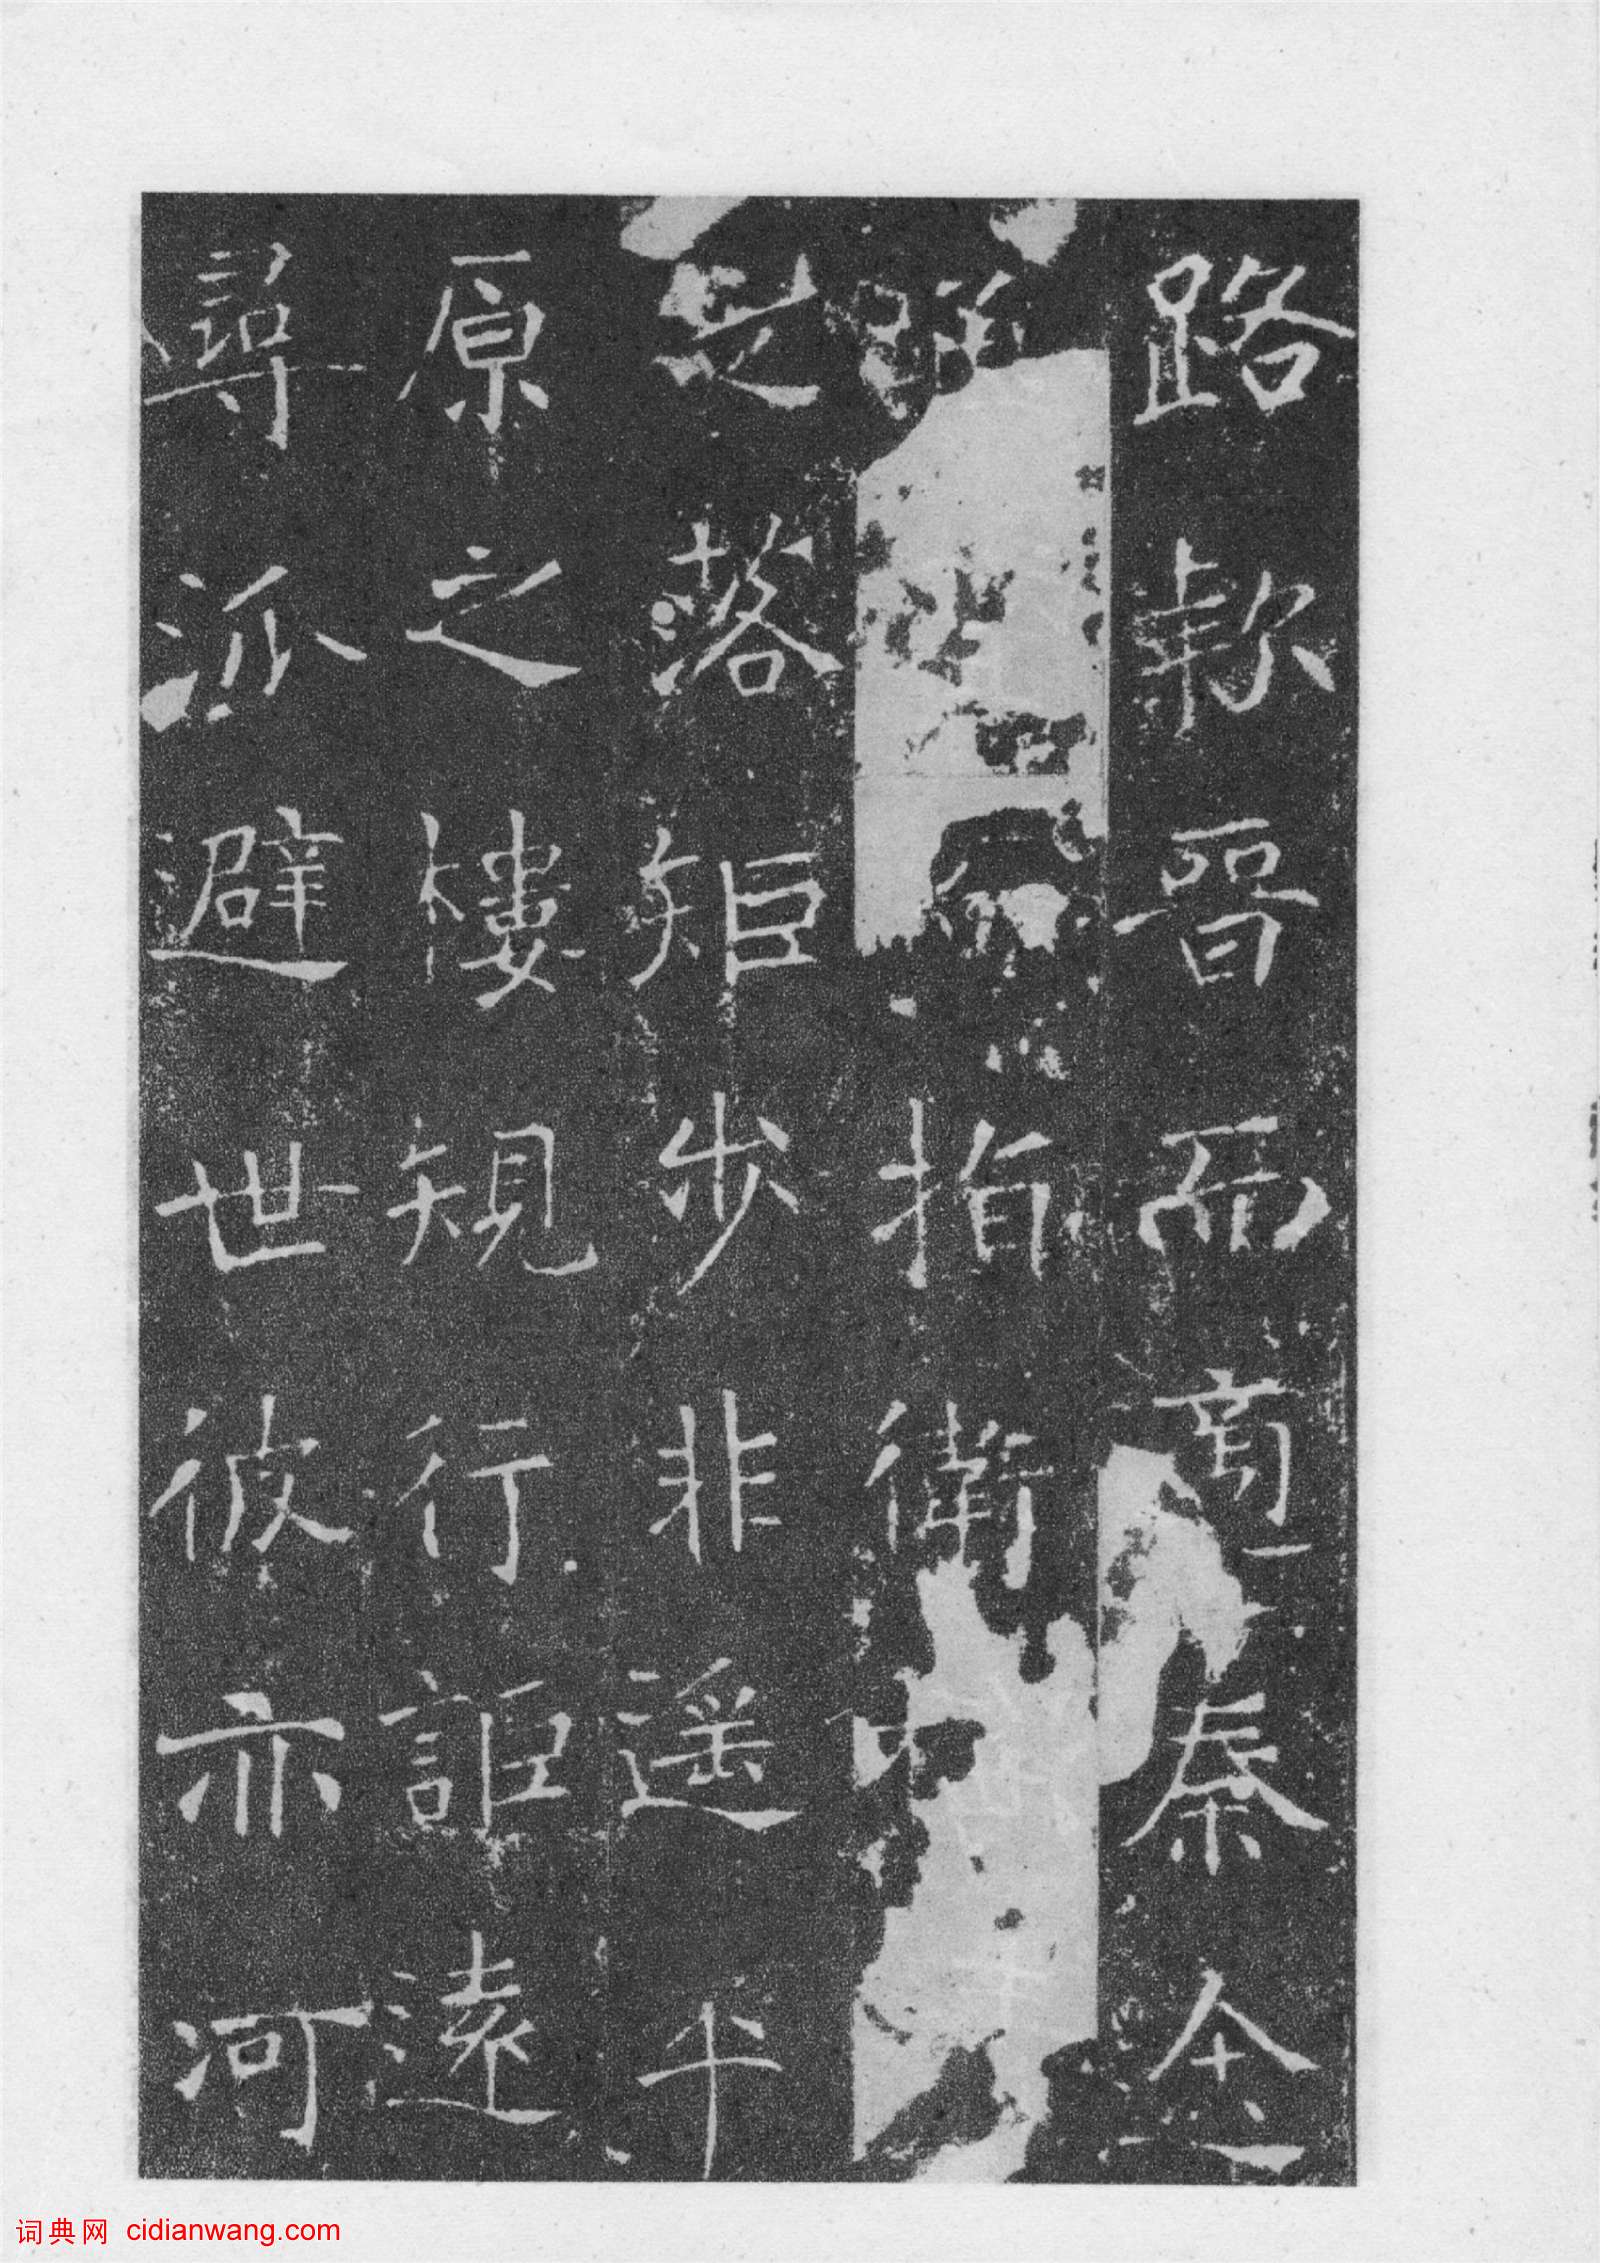 路款晉而適秦途
指衛
落矩步非遥平
原之樓規行詎遠
尋派避世彼亦河
词典网 cidianwang.com